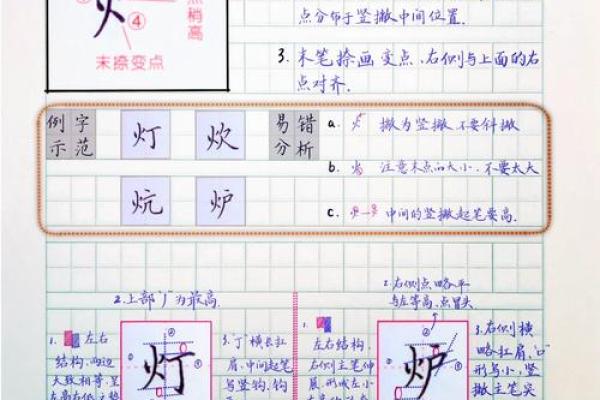 点稍
高
④
末捺变点
点分布于竖撇中间位置.
3. 末笔捺画变点、右侧与上面的右
点对齐.
例字
示范
灯
炊
炕
炉
易错
分析
a. 撇为竖撇 不要斜撇
b. 注意末点的大小、不要太大
c. 中间的竖撇起笔要高.
2. 上部 为最高.
1. 左右
结构,两边
大致相等,呈
灯
①
②
3. 丁横长扛
肩、中间起笔
写竖钩, 钩
2. 右侧点略平
与左等高、点冒头
1. 左右结构,
右侧主笔伸
展,形成左小
炉
①
②
3. 右侧横
略扛肩、
形写小、竖
撇主笔实